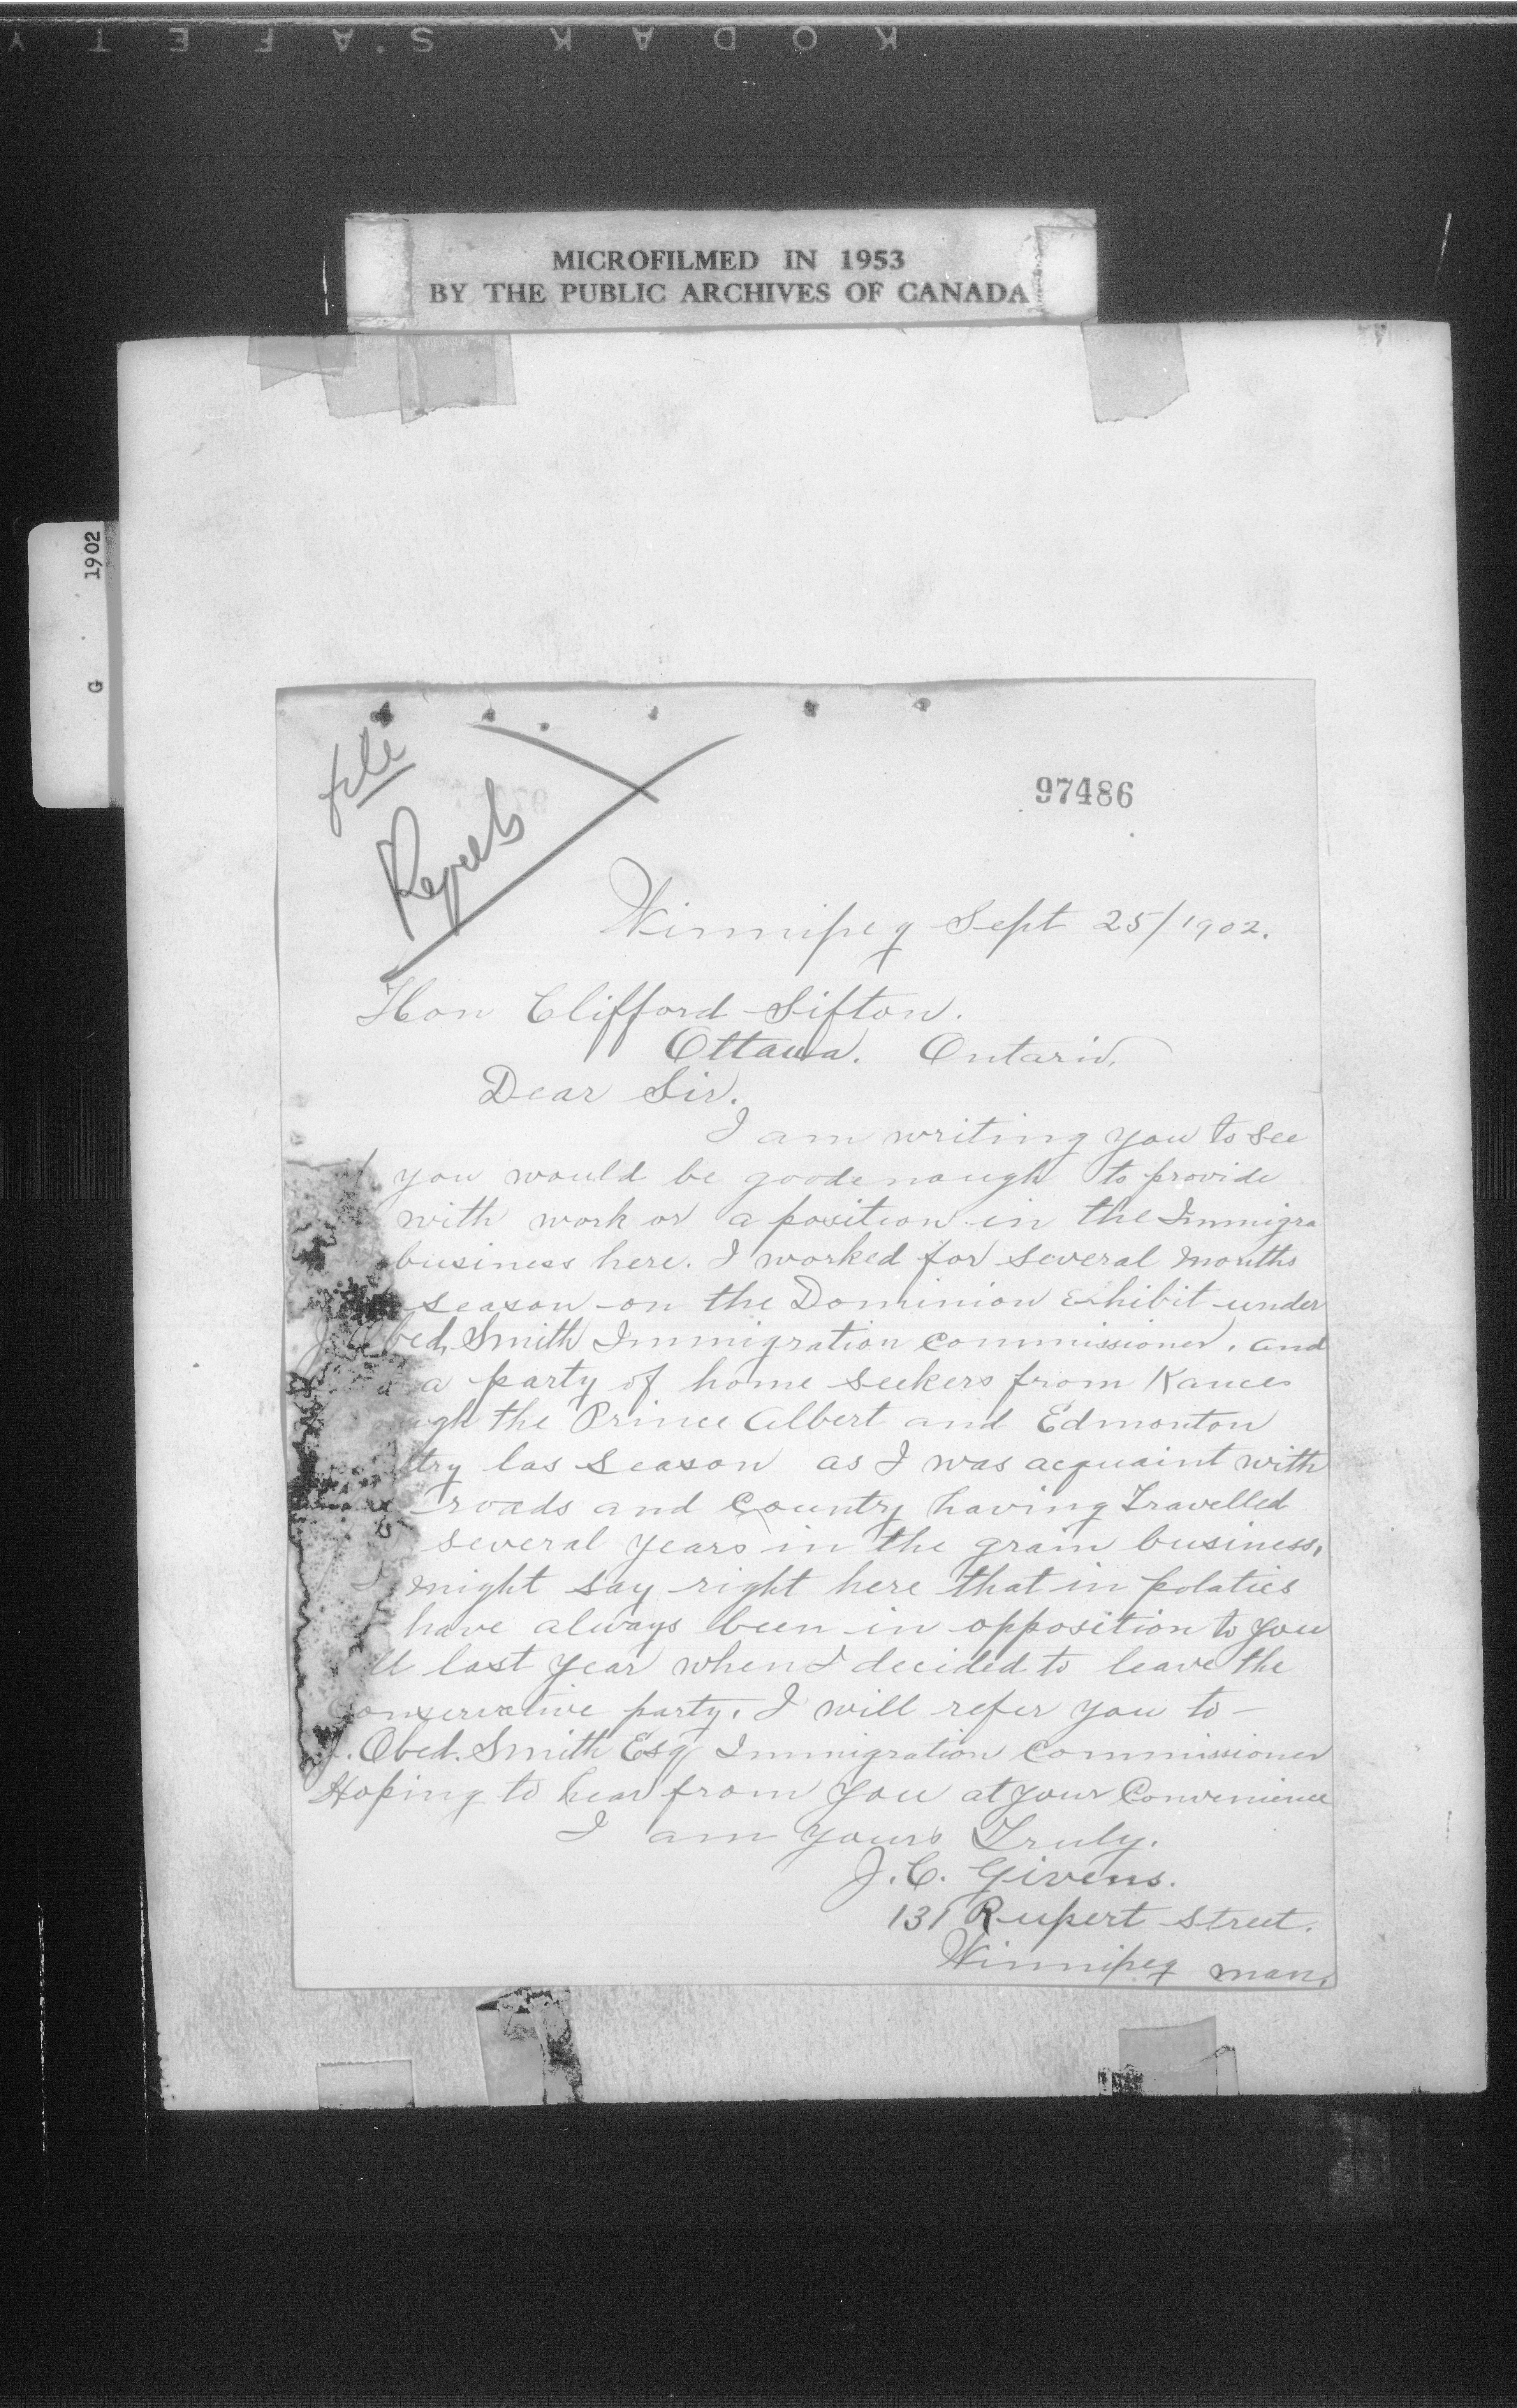 KODAK SAFETY
MICROFILMED IN 1953
BY THE PUBLIC ARCHIVES OF CANADA
G 1902
file
Regrets
97486
Winnipeg Sept 25/1902.
Hon Clifford Sifton.
Ottawa. Ontario.
Dear Sir.
I am writing you to see
you would be good enough to provide
with work or a position in the Immigra
business here. I worked for several months
season on the Dominion Exhibit under
J. Obed. Smith Immigration Commissioner. and
a party of home seekers from Kances
ugh the Prince Albert and Edmonton
try las season as I was acquaint with
roads and Country having Travelled
several years in the grain business,
I might say right here that in polatics
have always been in opposition to you
ll last year when I decided to leave the
Conservative party. I will refer you to
J. Obed. Smith Esq Immigration Commissioner
Hoping to hear from you at your Convenience
I am yours Truly.
J. C. Givens.
131 Rupert Street.
Winnipeg Man.